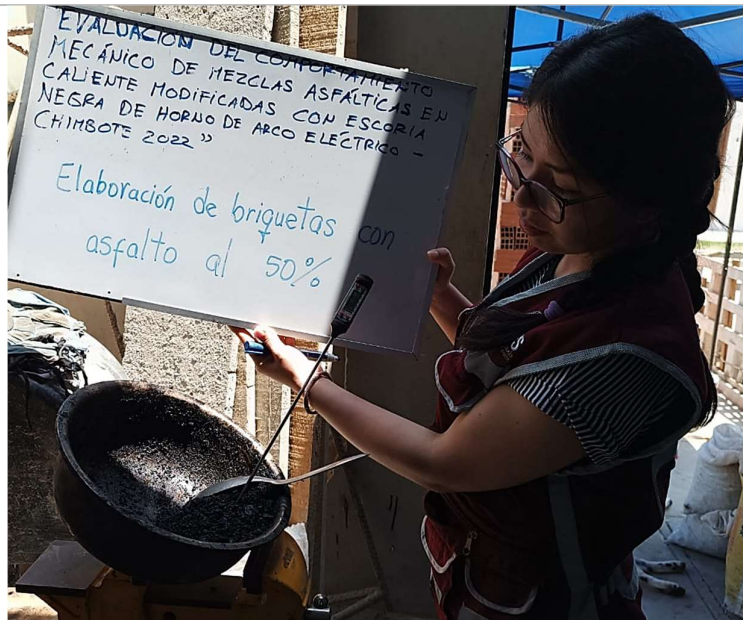 "EVALUACIÓN DEL COMPORTAMIENTO
MECÁNICO DE MEZCLAS ASFÁLTICAS EN
CALIENTE MODIFICADAS CON ESCORIA
NEGRA DE HORNO DE ARCO ELÉCTRICO -
CHIMBOTE 2022"
Elaboración de briquetas con
asfalto al 50%